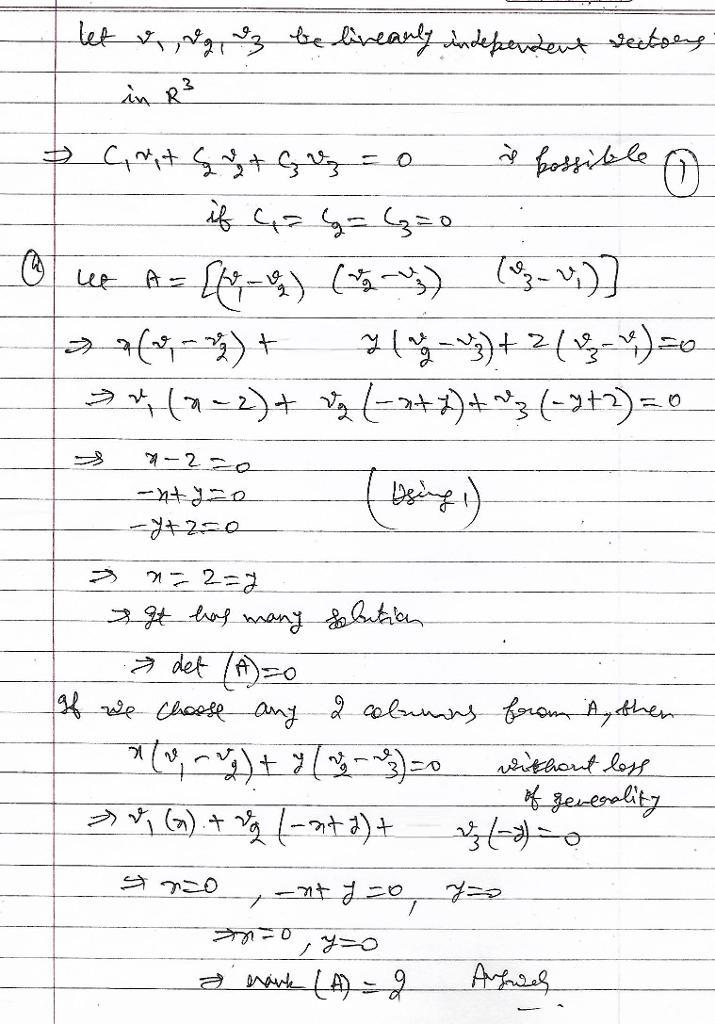 let v₁, v₂, v₃ be linearly independent vectors
in R³
⇒ C₁v₁ + C₂v₂ + C₃v₃ = 0 is possible ①
if C₁ = C₂ = C₃ = 0
ⓐ let A = [(v₁-v₂) (v₂-v₃) (v₃-v₁)]
⇒ x(v₁-v₂) + y(v₂-v₃) + z(v₃-v₁) = 0
⇒ v₁(x-z) + v₂(-x+y) + v₃(-y+z) = 0
⇒ x-z=0
-x+y=0 (Using 1)
-y+z=0
⇒ x=z=y
⇒ It has many solution
⇒ det (A)=0
If we choose any 2 columns from A, then
x(v₁-v₂) + y(v₂-v₃)=0 without loss
of generality
⇒ v₁(x) + v₂(-x+y) + v₃(-y)=0
⇒ x=0, -x+y=0, y=0
⇒ x=0, y=0
⇒ rank (A) = 2 Answer